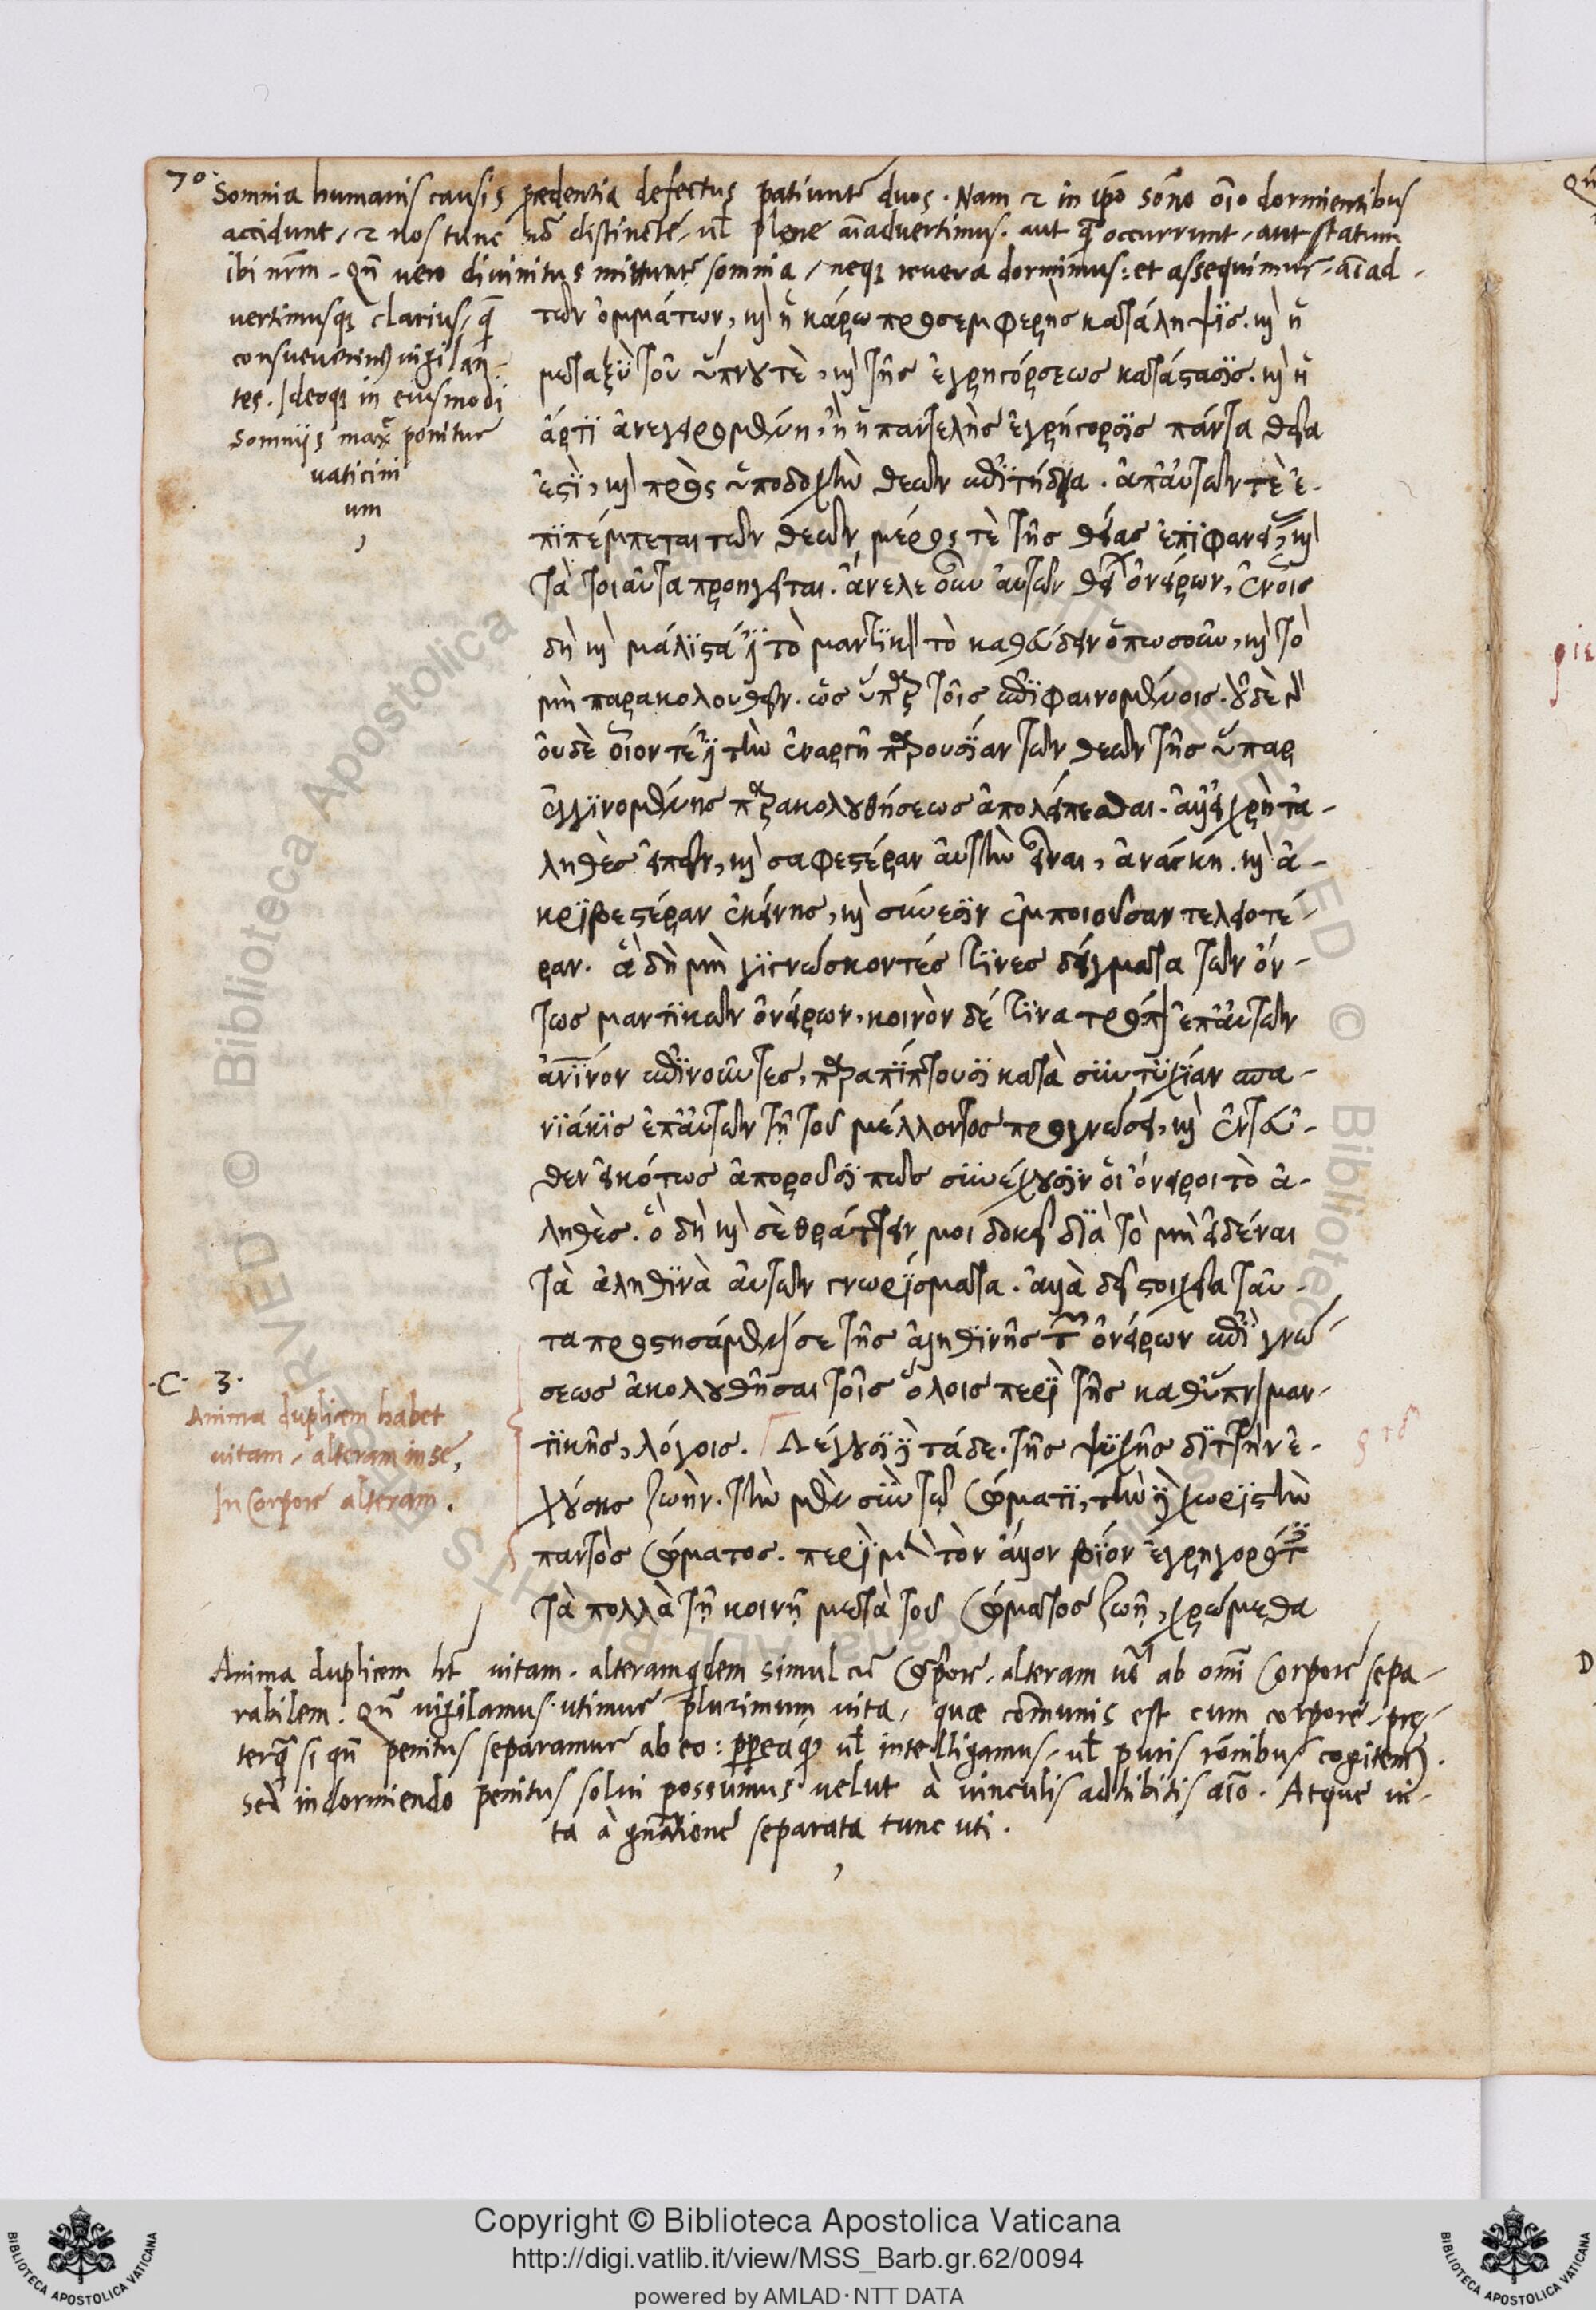 70. Somnia humanis causis prędentia defectus patiunt duos. Nam & in ip̄o som̄o oīo dormientibus
accidunt, & nos tunc nō distincte, ul̄ plene aīadvertimus. aut q̄ occurrunt, aut statum
ibi nr̄m. Qn̄ vero divinitus mittunt somnia, neq; revera dormimus: et assequimur, aīad-
vertimusq; clarius, q̄
consueverimus vigilan-
tes. Ideoq; in eiusmodi
somniis maxē ponitur
vaticini
um
,
των ὀμμάτων, καὶ ἡ κάρῳ προσεμφερὴς κατάληψις. καὶ ἡ
μεταξὺ τοῦ ὕπνου τὲ, καὶ τῆς ἐγρηγόρσεως κατάστασις. καὶ ἡ
ἄρτι ἀνεγειρομένη, ἢ ἡ παντελὴς ἐγρήγορσις πάντα θεῖα
ἐστὶ, καὶ πρὸς ὑποδοχὴν θεῶν ἐπιτήδεια. ἀπ' αὐτῶν τὲ ἐ-
πιπέμπεται τῶν θεῶν, μέρος τὲ τῆς θείας ἐπιφανείας, καὶ
τὰ τοιαῦτα προηγεῖται. ἄνελε οὖν αὐτῶν θείων ὀνείρων, ἐν οἷς
δὴ καὶ μάλιστά ἐστι τὸ μαντικὸν τὸ καθεύδειν ὁπωσοῦν, καὶ τὸ
μὴ παρακολουθεῖν. ὡς ὕπαρ τοῖς ἐπιφαινομένοις. οὐδὲ γὰρ
οὐδὲ οἷόν τέ ἐστι τὴν ἐναργῆ παρουσίαν τῶν θεῶν τῆς ὕπαρ
ἐγγινομένης παρακολουθήσεως ἀπολείπεσθαι. ἀλλ' εἰ χρὴ τἀ-
ληθὲς εἰπεῖν, καὶ σαφεστέραν αὐτὴν εἶναι, ἀνάγκη. καὶ ἀ-
κριβεστέραν ἐκείνης, καὶ σύνεσιν ἐμποιοῦσαν τελειοτέ-
ραν. ἃ δὴ μὴ γιγνώσκοντές τινες δείγματα τῶν ὄν-
τως μαντικῶν ὀνείρων, κοινὸν δέ τινα τρόπον ἐπ' αὐτῶν
ἀνινον ἐπινοοῦντες, παραπίπτουσι κατὰ συντυχίαν σπα-
νιάκις ἐπ' αὐτῶν τῇ τοῦ μέλλοντος προγνώσει, καὶ ἐντεῦ-
θεν εἰκότως ἀποροῦσι πῶς συνέχουσιν οἱ ὄνειροι τὸ ἀ-
ληθὲς. ὃ δὴ καὶ σὲ θράττειν μοι δοκεῖ διὰ τὸ μὴ εἰδέναι
τὰ ἀληθινὰ αὐτῶν γνωρίσματα. ἀλλὰ δεῖ στοιχεῖα ταῦ-
τα προστησάμενόν σε τῆς ἀληθινῆς τῶν ὀνείρων ἐπιγνώ-
σεως ἀκολουθῆσαι τοῖς ὅλοις περὶ τῆς καθ' ὕπνον μαν-
τικῆς, λόγοις. Λέγουσι δὲ τάδε. τῆς ψυχῆς διττὴν ἐ-
χούσης ζωὴν. τὴν μὲν σὺν τῷ σώματι, τὴν δὲ χωριστὴν
παντὸς σώματος. περὶ μὲν τὸν ἄλλον βίον ἐγρηγορότες
τὰ πολλὰ τῇ κοινῇ μετὰ τοῦ σώματος ζωῇ, χρώμεθα
·C· 3·
Anima duplicem habet
vitam, alteram in se,
In Corpore alteram.
Anima duplicem ht̄ vitam. alteram qdem simul cū Corpore, alteram vō ab omi Corpore sepa-
rabilem. Qn̄ vigilamus utimur plurimum vita, quæ cōmunis est cum corpore, prę-
terq̄ si qn̄ penitus separamur ab eo: ppeaq; ul̄ intelligamus, ul̄ puris rōnibus cogitem9.
sed in dormiendo penitus solvi possumus velut à vinculis adhibitis aīo. Atque vi-
ta à gn̄atione separata tunc uti.
,
Copyright © Biblioteca Apostolica Vaticana
http://digi.vatlib.it/view/MSS_Barb.gr.62/0094
powered by AMLAD·NTT DATA